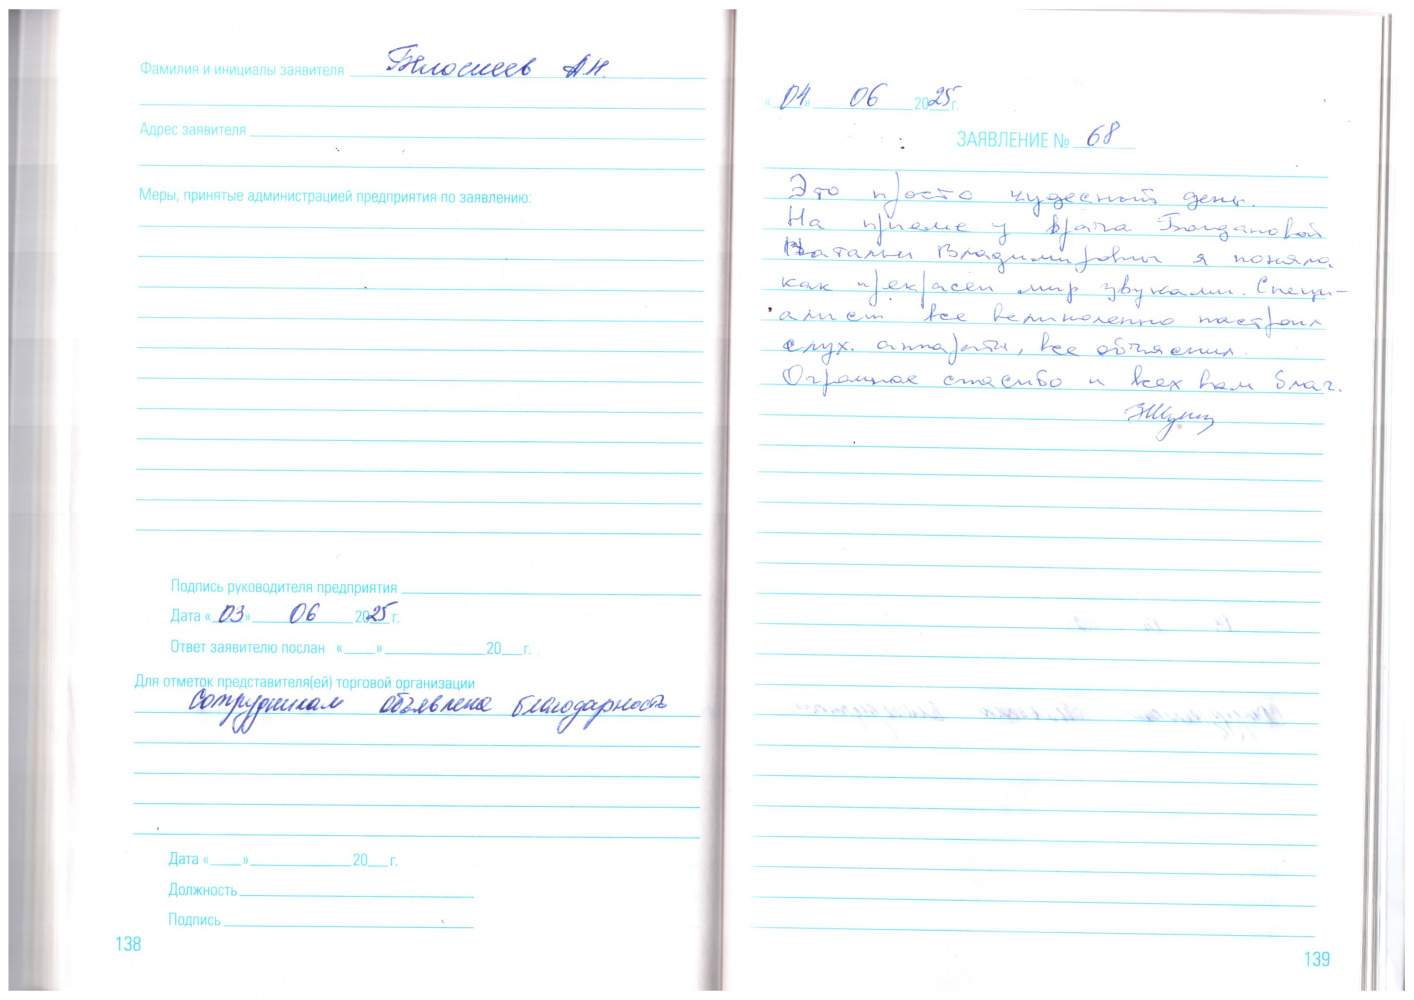 Фамилия и инициалы заявителя Белошеев А.Н.
Адрес заявителя
Меры, принятые администрацией предприятия по заявлению:
Подпись руководителя предприятия
Дата «03» 06 2025 г.
Ответ заявителю послан «____» ________ 20__ г.
Для отметок представителя(ей) торговой организации
Сотрудникам объявлена благодарность
Дата «____» ________ 20__ г.
Должность
Подпись
138
«04» 06 2025 г.
ЗАЯВЛЕНИЕ № 68
Это просто чудесный день.
На приеме у врача Богдановой
Натальи Владимировны я поняла
как прекрасен мир звуками. Специ-
алист все великолепно настроил
слух. аппараты, все объяснил.
Огромное спасибо и всех вам благ.
139